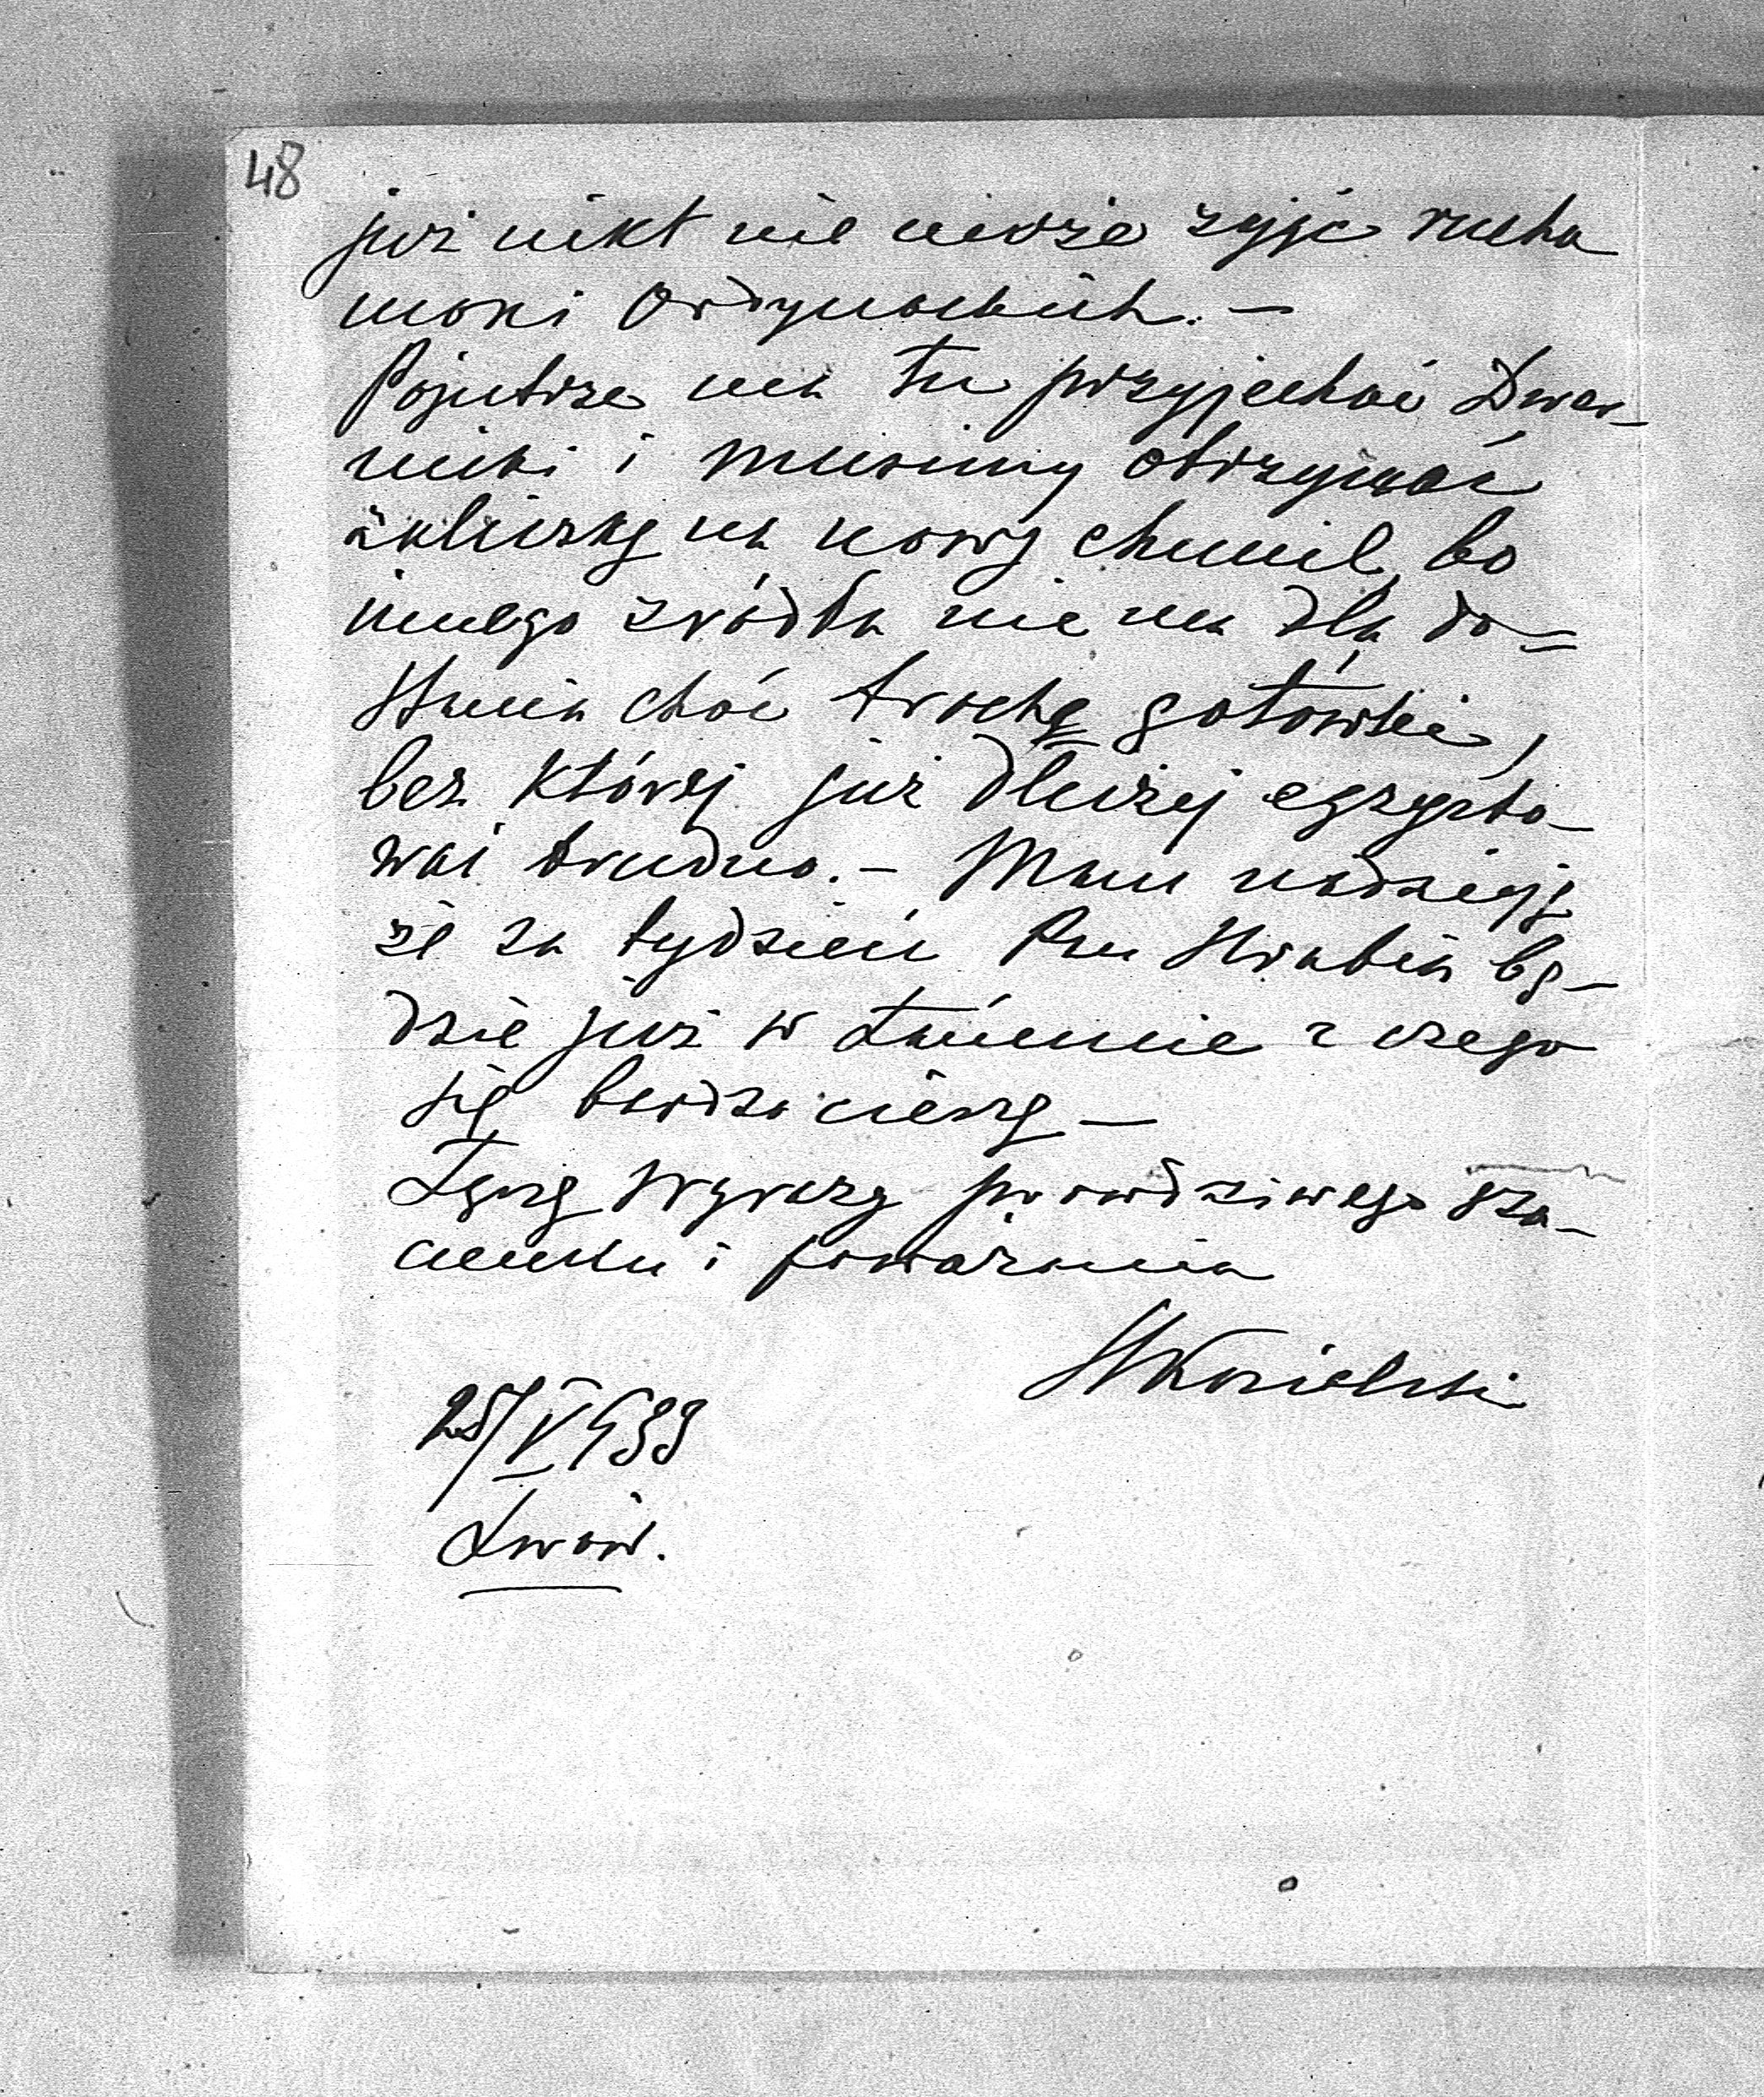 48
już nikt nie może zająć rucho
mości Ordynackich. –
Pojutrze ma tu przyjechać Dwer-
nicki i musimy otrzymać
zaliczkę na nowy chmiel, bo
innego źródła nie ma dla do=
stania choć trochę gotówki,
bez której już dłużej egzysto-
wać trudno. – Mam nadzieję
że za tydzień Pan Hrabia bę-
dzie już w Łańcucie z czego
się bardzo cieszę –
Łączę wyrazy prawdziwego sza-
cunku i poważania
25/V 1933
Lwów.